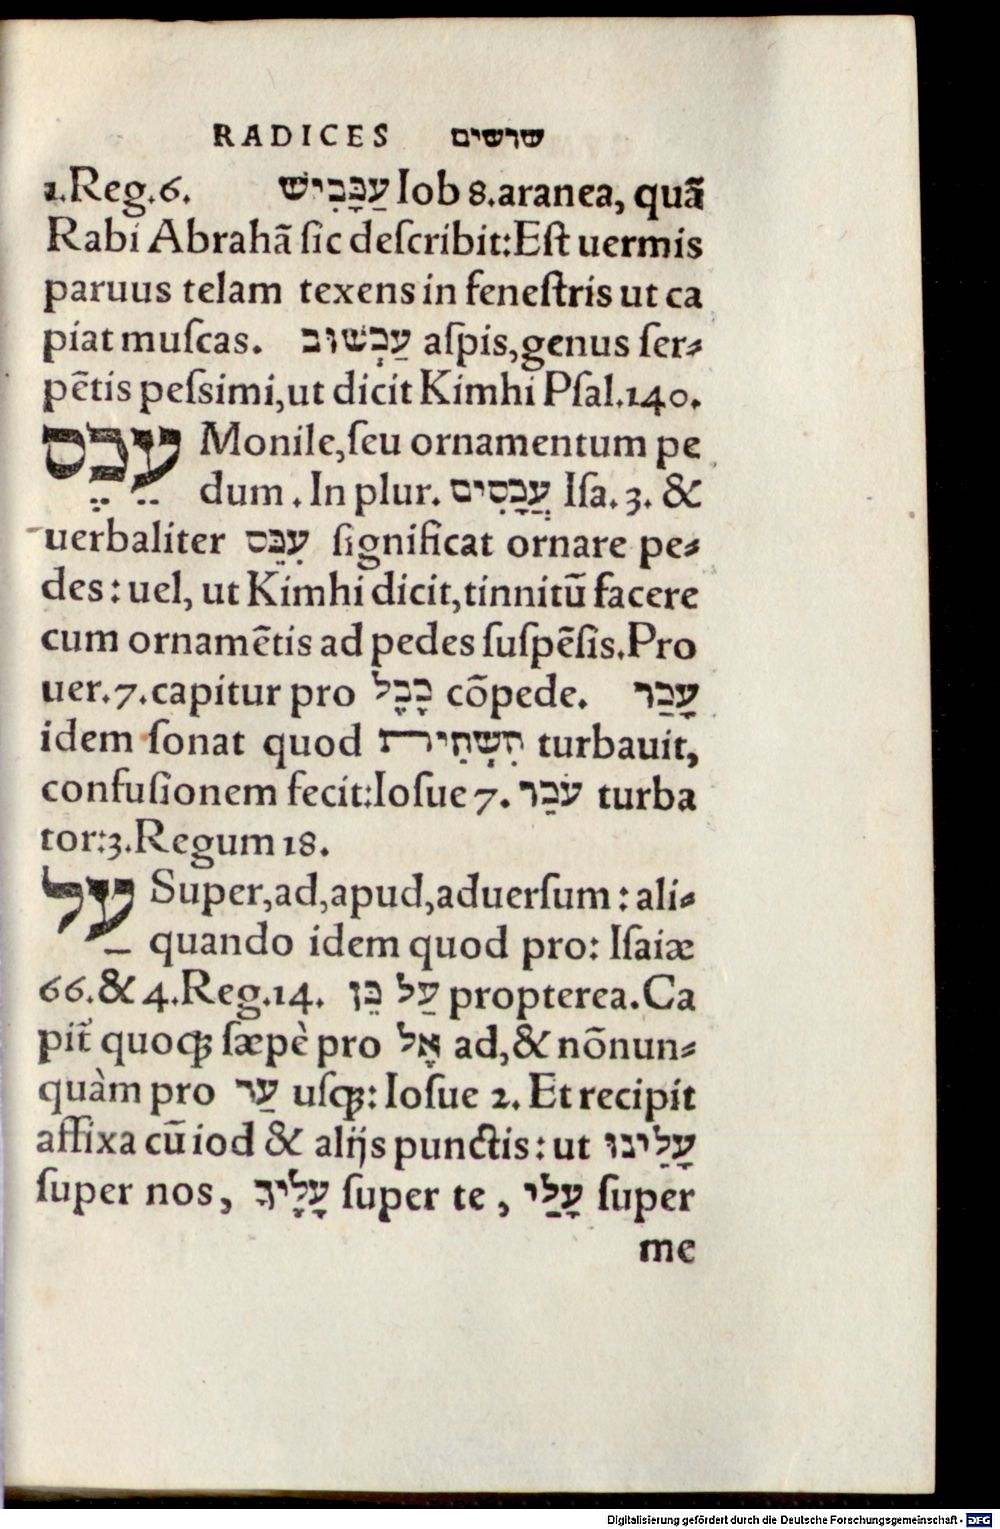 RADICES שרשים
1.Reg.6. עַכָּבִישׁ Iob 8.aranea, quã
Rabi Abrahã ſic deſcribit:Eſt uermis
paruus telam texens in feneſtris ut ca
piat muſcas. עַכְשׁוּב aſpis,genus ſer⸗
pẽtis peſsimi,ut dicit Kimhi Pſal.140.
עֶכֶס Monile,ſeu ornamentum pe
dum . In plur. עֲכָסִים Iſa. 3. &
uerbaliter עִכֵּס ſignificat ornare pe⸗
des : uel, ut Kimhi dicit,tinnitũ facere
cum ornamẽtis ad pedes ſuſpẽſis.Pro
uer.7.capitur pro כֶּבֶל cõpede. עָכַר
idem ſonat quod הִשְׁחִית turbauit,
confuſionem fecit:Ioſue 7. עֹכֵר turba
tor:3.Regum 18.
עַל Super,ad,apud,aduerſum : ali⸗
quando idem quod pro: Iſaiæ
66.& 4.Reg.14. עַל כֵּן propterea.Ca
pit̃ quoqꝫ ſæpè pro אֶל ad,& nõnun⸗
quàm pro עַד uſqꝫ: Ioſue 2. Et recipit
affixa cũ iod & alijs punctis : ut עָלֵינוּ
ſuper nos, עָלֶיךָ ſuper te , עָלַי ſuper
me
Digitalisierung gefördert durch die Deutsche Forschungsgemeinschaft - DFG